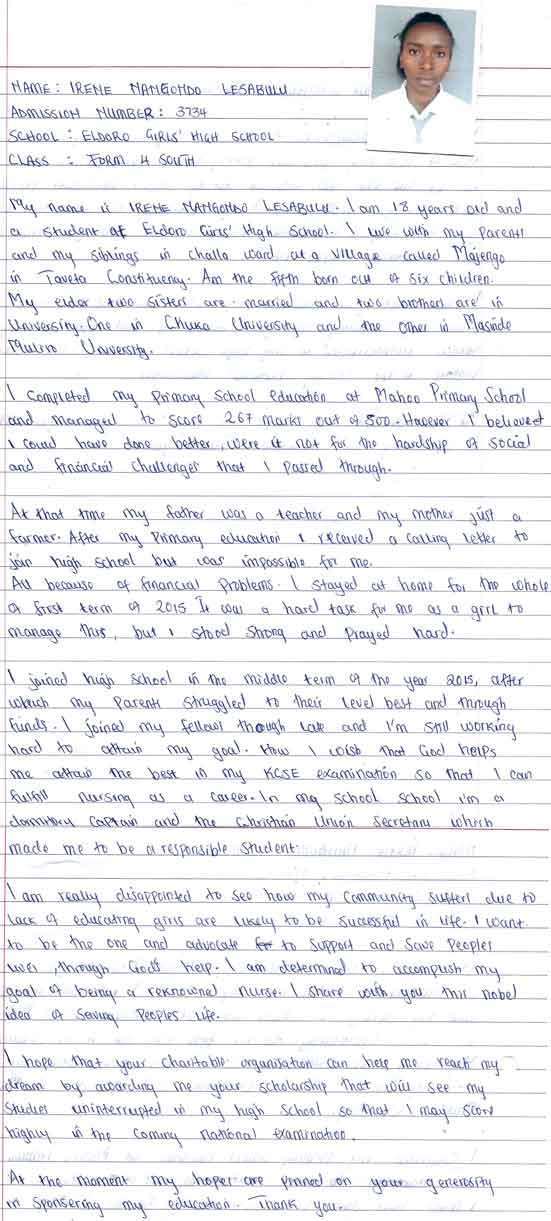 NAME: IRENE MANGONDO LESABULU
ADMISSION NUMBER: 3734
SCHOOL: ELDORO GIRLS' HIGH SCHOOL
CLASS : FORM 4 SOUTH
My name is IRENE MANGONDO LESABULU. I am 18 years old and
a student at Eldoro Girls' High School. I live with my Parents
and my siblings in challa ward at a village called Majengo
in Taveta Constituency. Am the fifth born out of six children.
My elder two sisters are married and two brothers are in
University. One in Chuka University and the other in Masinde
Muliro University.
I completed my Primary School education at Mahoo Primary School
and managed to score 267 marks out of 500. However I believed
I could have done better, were it not for the hardship of social
and financial challenges that I passed through.
At that time my father was a teacher and my mother just a
farmer. After my Primary education I received a calling letter to
join high school but was impossible for me.
All because of financial Problems. I stayed at home for the whole
of first term of 2015 It was a hard task for me as a girl to
manage this, but I stood strong and Prayed hard.
I joined high school in the middle term of the year 2015, after
which my Parents struggled to their level best and through
funds. I joined my fellows though late and I'm still working
hard to attain my goal. How I wish that God helps
me attain the best in my KCSE examination so that I can
fulfill nursing as a career. In my school school I'm a
dormitory captain and the Christian Union Secretary which
made me to be a responsible student.
I am really disappointed to see how my Community suffers due to
lack of educating girls are likely to be successful in life. I want
to be the one and advocate to support and save Peoples
lives, through God's help. I am determined to accomplish my
goal of being a reknowned nurse. I share with you this nobel
idea of saving Peoples life.
I hope that your charitable organisation can help me reach my
dream by awarding me your scholarship that will see my
studies uninterrupted in my high school so that I may score
highly in the coming national examination.
At the moment my hopes are pinned on your generosity
in sponsering my education. Thank you.